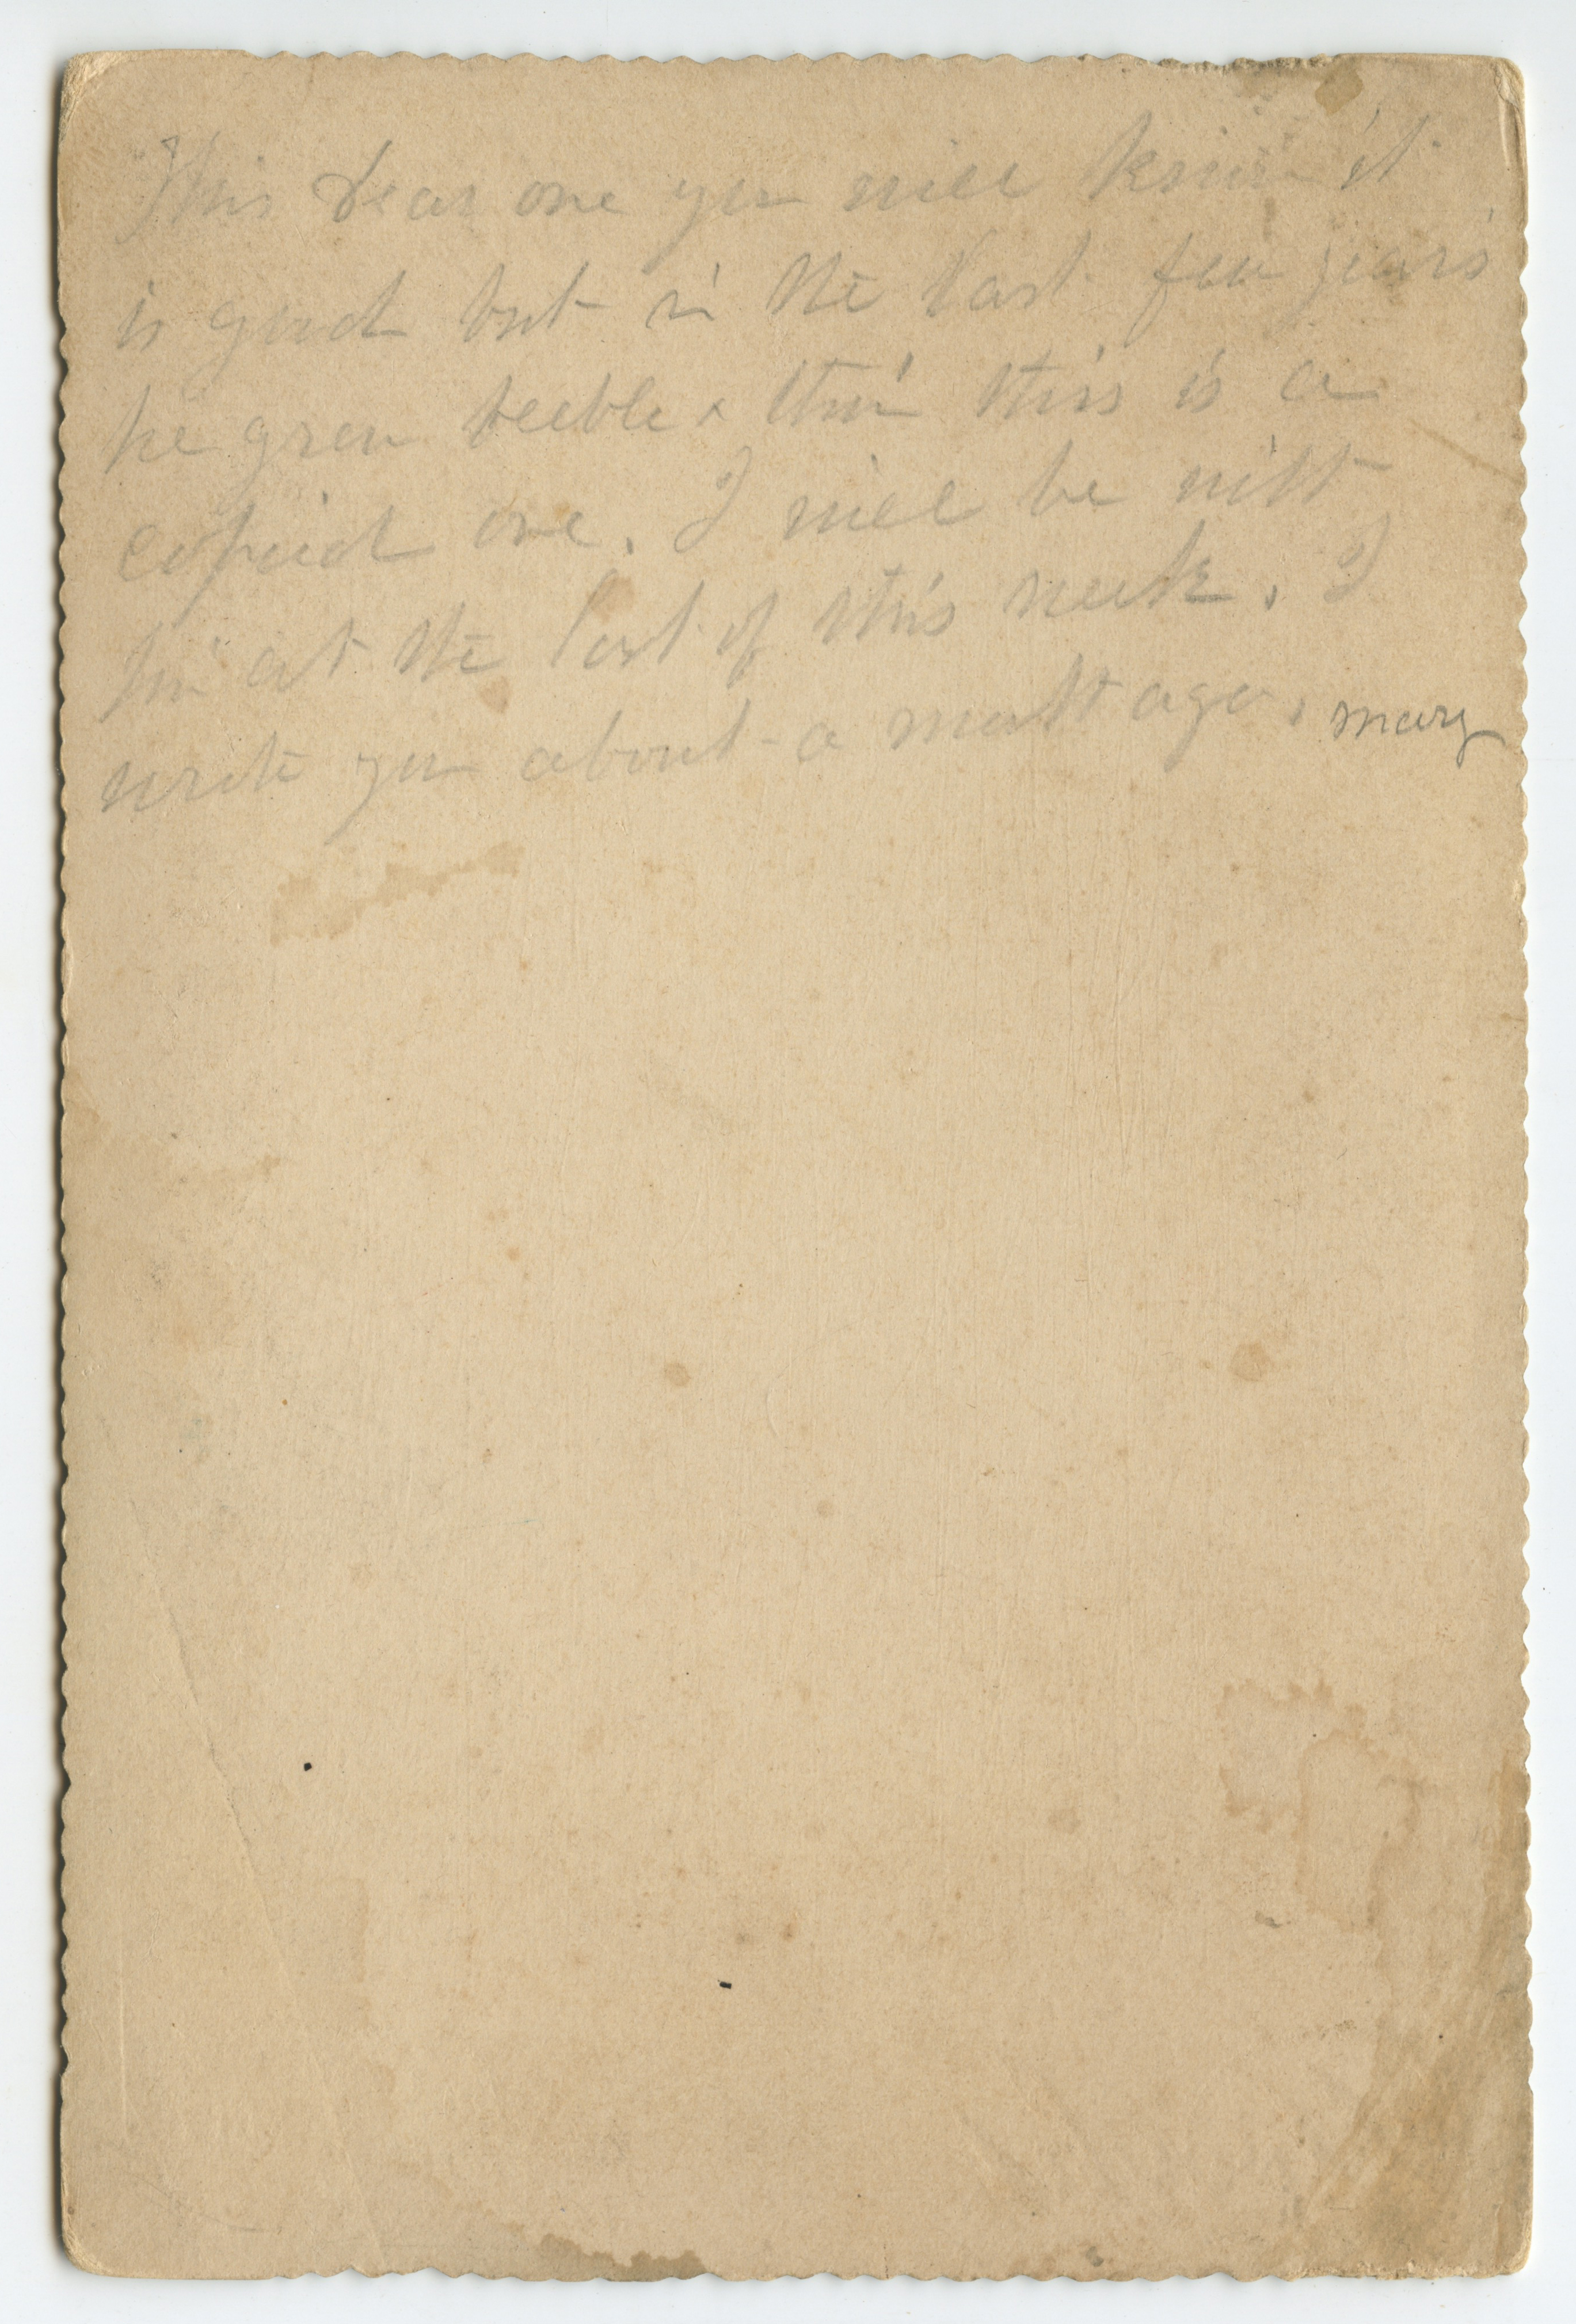 This dear one you will know it
is good but in the last few years
he grew feeble & thin this is a
copied one. I will be with
him at the last of this week. I
write you about a month ago. Mary